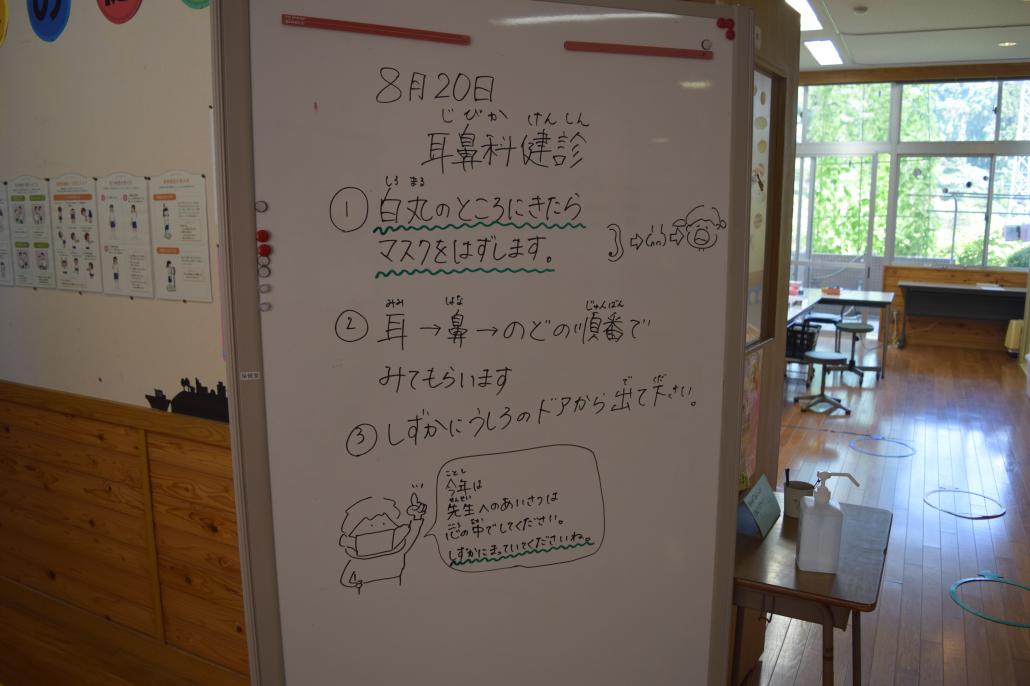 8月20日
じびか けんしん
耳鼻科健診
しろ まる
① 白丸のところにきたら
マスクをはずします。
みみ はな じゅんばん
② 耳→鼻→のどの順番で
みてもらいます
で くだ
③ しずかにうしろのドアから出て下さい。
ことし
今年は
せんせい
先生へのあいさつは
こころ なか
心の中でしてください。
しずかにまっていてくださいね。